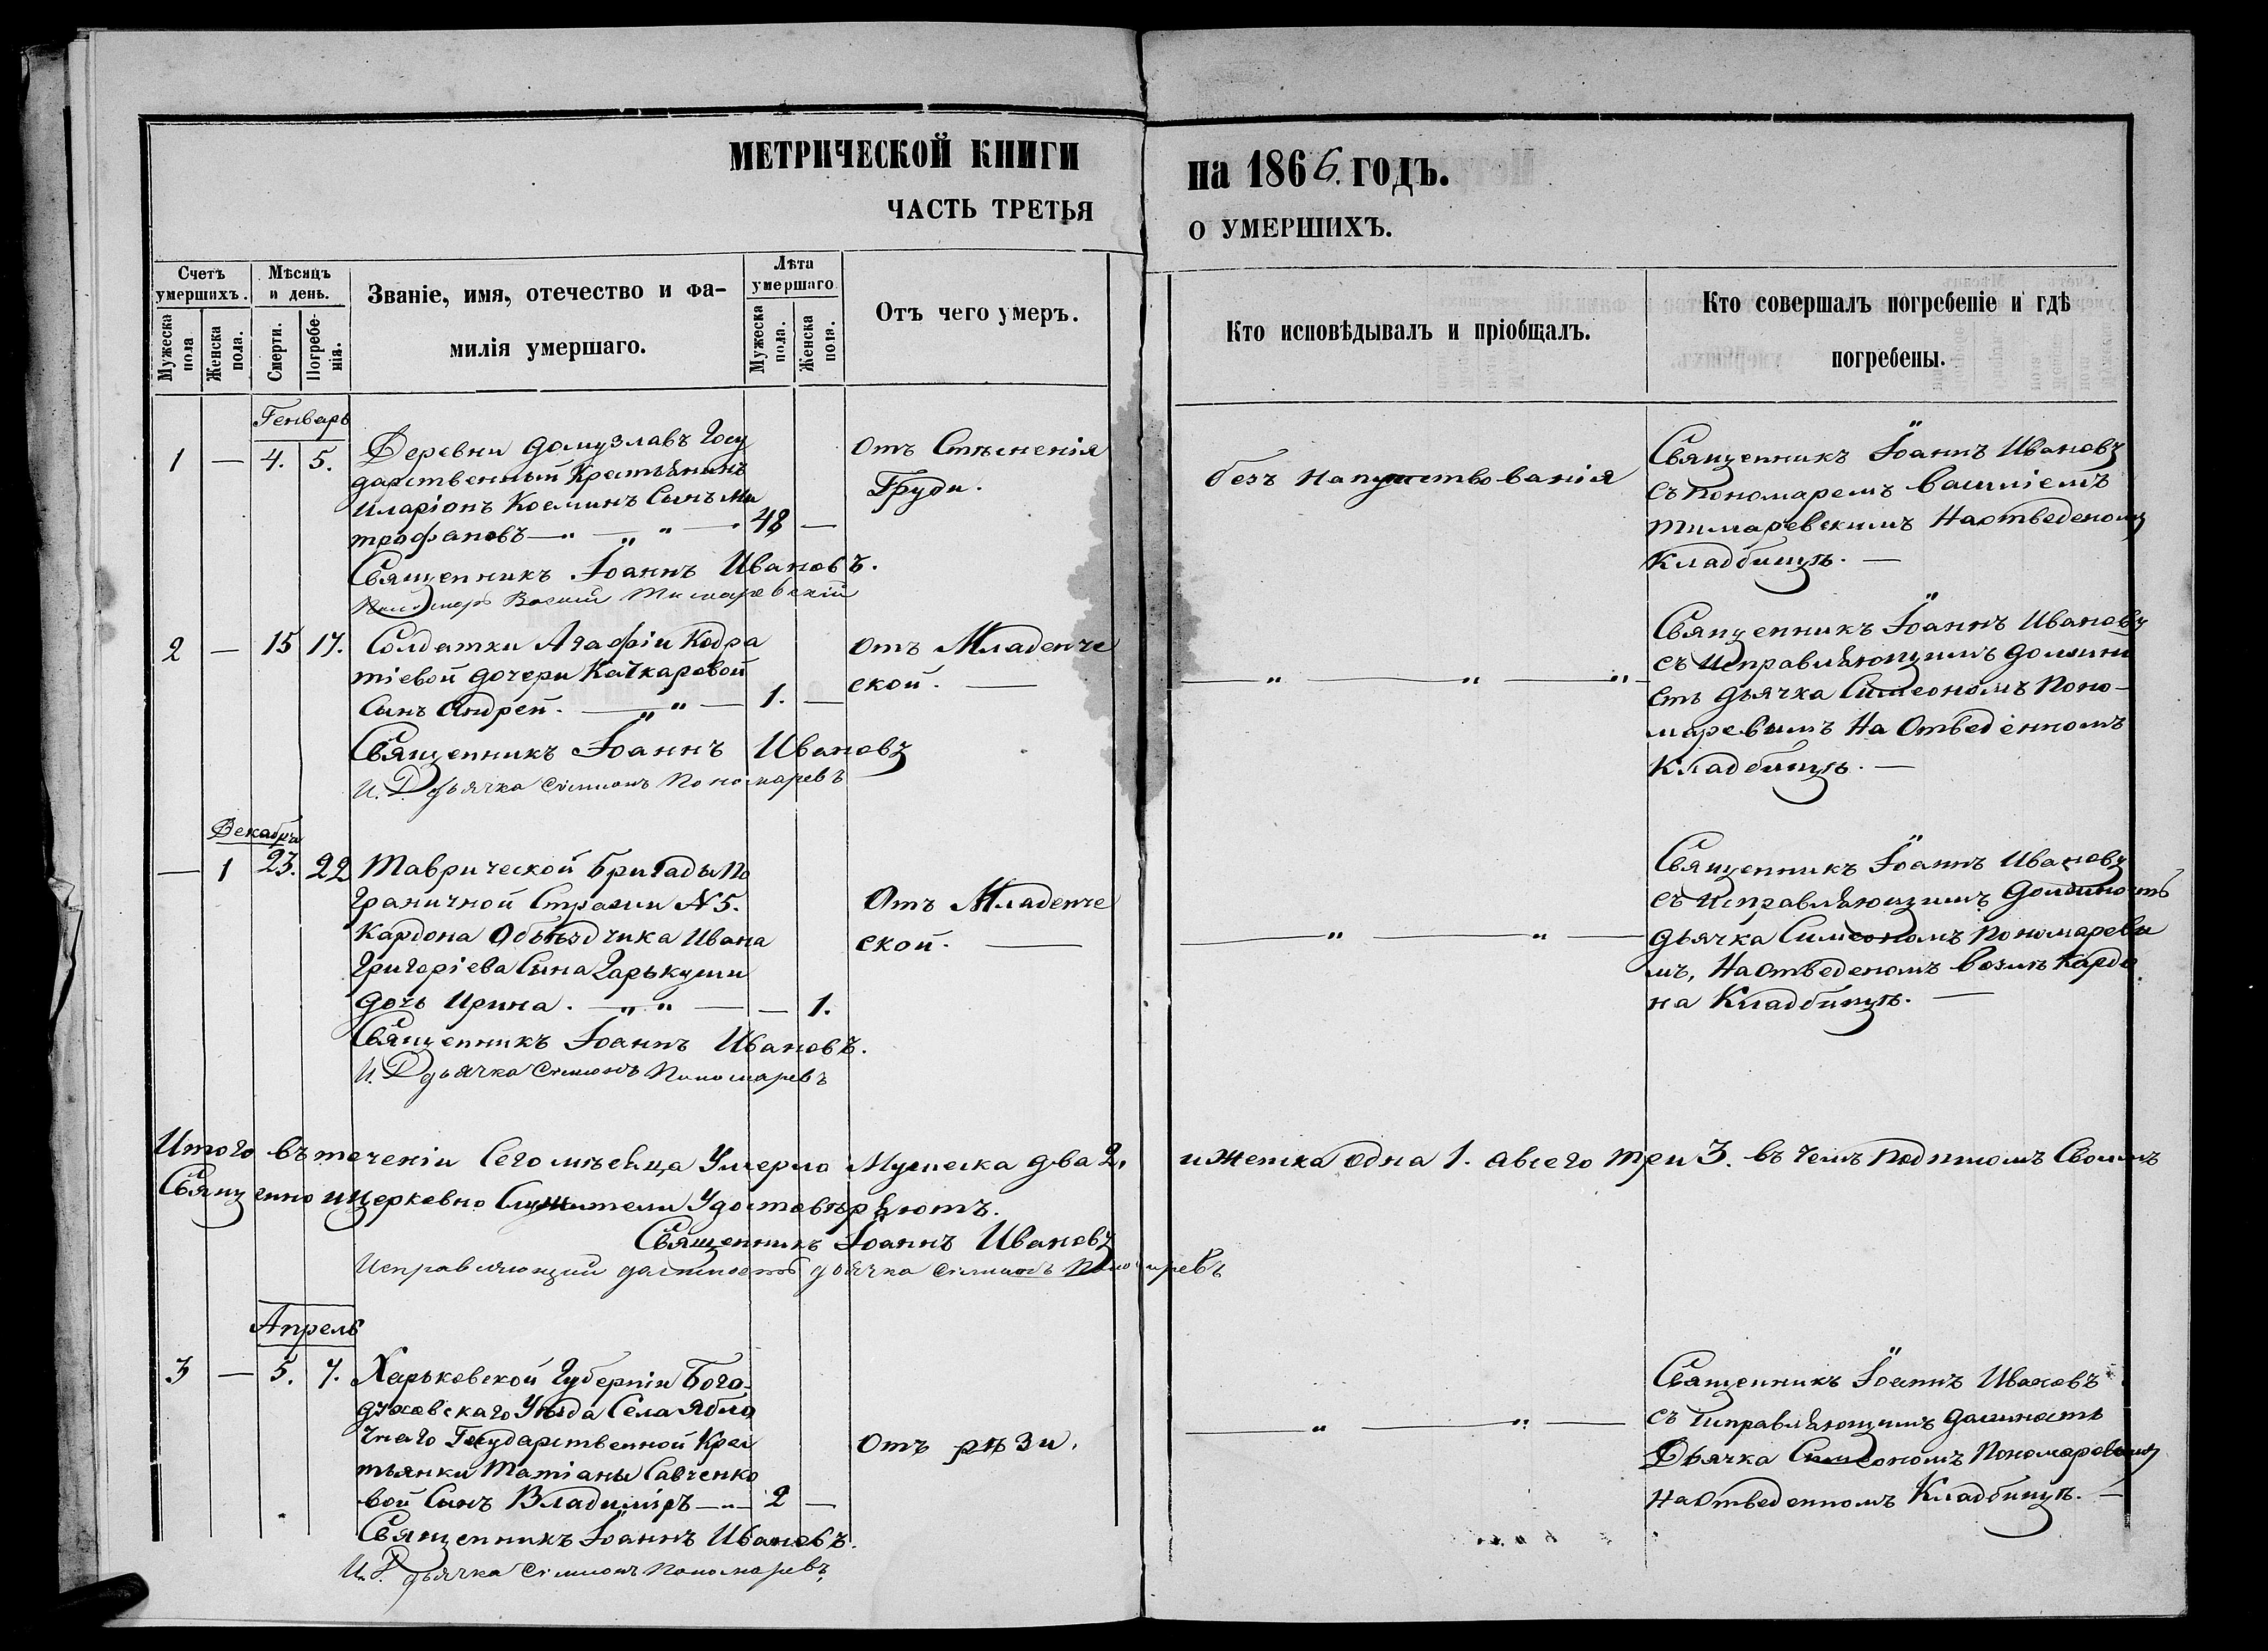 МЕТРИЧЕСКОЙ КНИГИ
на 1866. годъ.
ЧАСТЬ ТРЕТЬЯ
О УМЕРШИХЪ.
Счетъ умершихъ.
Мужеска пола
Женска пола.
Мѣсяцъ и день.
Смерти.
Погребе-
нія.
Званіе, имя, отечество и фа-
милія умершаго.
Лѣта умершаго
Мужеска пола.
Женска пола.
Отъ чего умеръ.
Кто исповѣдывалъ и пріобщалъ.
Кто совершалъ погребеніе и гдѣ
погребены.
Генварь
1 — 4. 5.
Деревни Домузлавъ Госу
дарственный Крестьянинъ
Иларіонъ Козминъ Сынъ Ми
трофановъ — „ — „ — 48 —
Священникъ Іоаннъ Ивановъ.
Пономарь Василій Тимаревскій
Отъ Стѣсненія
Груди.
безъ Напутствованія
Священникъ Іоаннъ Ивановъ
съ пономаремъ Василіемъ
Тимаревскимъ На отведеномъ
Кладбищѣ. —
2 — 15 17.
Солдатки Агафіи Кодра
тіевой дочери Качкаровой
Сынъ Андрей. — „ „ — 1. —
Священникъ Іоаннъ Ивановъ
И. Д. дьячка Сімионъ Пономаревъ
отъ Младенче
ской. —
— „ — „ — „ —
Священникъ Іоаннъ Ивановъ
съ Исправляющимъ должно
сть дьячка Симеономъ Поно-
маревымъ На Отведенномъ
Кладбищѣ. —
Декабрь
— 1 23. 22
Таврической Бригады По
граничной Стражи N 5.
Кардона Объѣздчика Ивана
Григоріева Сына Гарькуши
дочь Ирина. — „ „ — — 1.
Священникъ Іоаннъ Ивановъ.
И. Д дьячка Сімионъ Пономаревъ
Отъ Младенче
ской. —
— „ — „ —
Священникъ Іоаннъ Ивановъ
съ Исправляющимъ Должность
дьячка Симеономъ Пономаревы
мъ, На отведеномъ возлѣ Кардо
на Кладбищѣ. —
Итого въ теченіи Сего мѣсяца Умерло Мужеска два 2. и Женска одна 1. а всего три 3. въ чемъ подписомъ Своимъ
Священно и церковно Служители Удостовѣряютъ.
Священникъ Іоаннъ Ивановъ
Исправляющій должность дьячка Сімионъ Пономаревъ
Апрель
3 — 5. 7.
Харьковской Губерніи Бого-
духовскаго Уѣзда Села Ябло
чнаго Государственной Крес
тьянки Татіаны Савченко
вой Сынъ Владиміръ — „ — 2 —
Священникъ Іоаннъ Ивановъ.
И. Д. дьячка Сімионъ Пономаревъ
Отъ рѣзи.
— „ — „ —
Священникъ Іоаннъ Ивановъ
съ Исправляющимъ Должность
Дьячка Симеономъ Пономаревымъ
на Отведенномъ Кладбищѣ. —